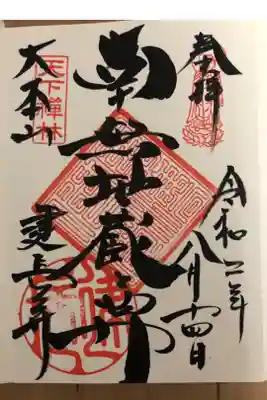 奉拝
令和二年
八月十四日
南無地蔵尊
天下禅林
大本山
建長寺